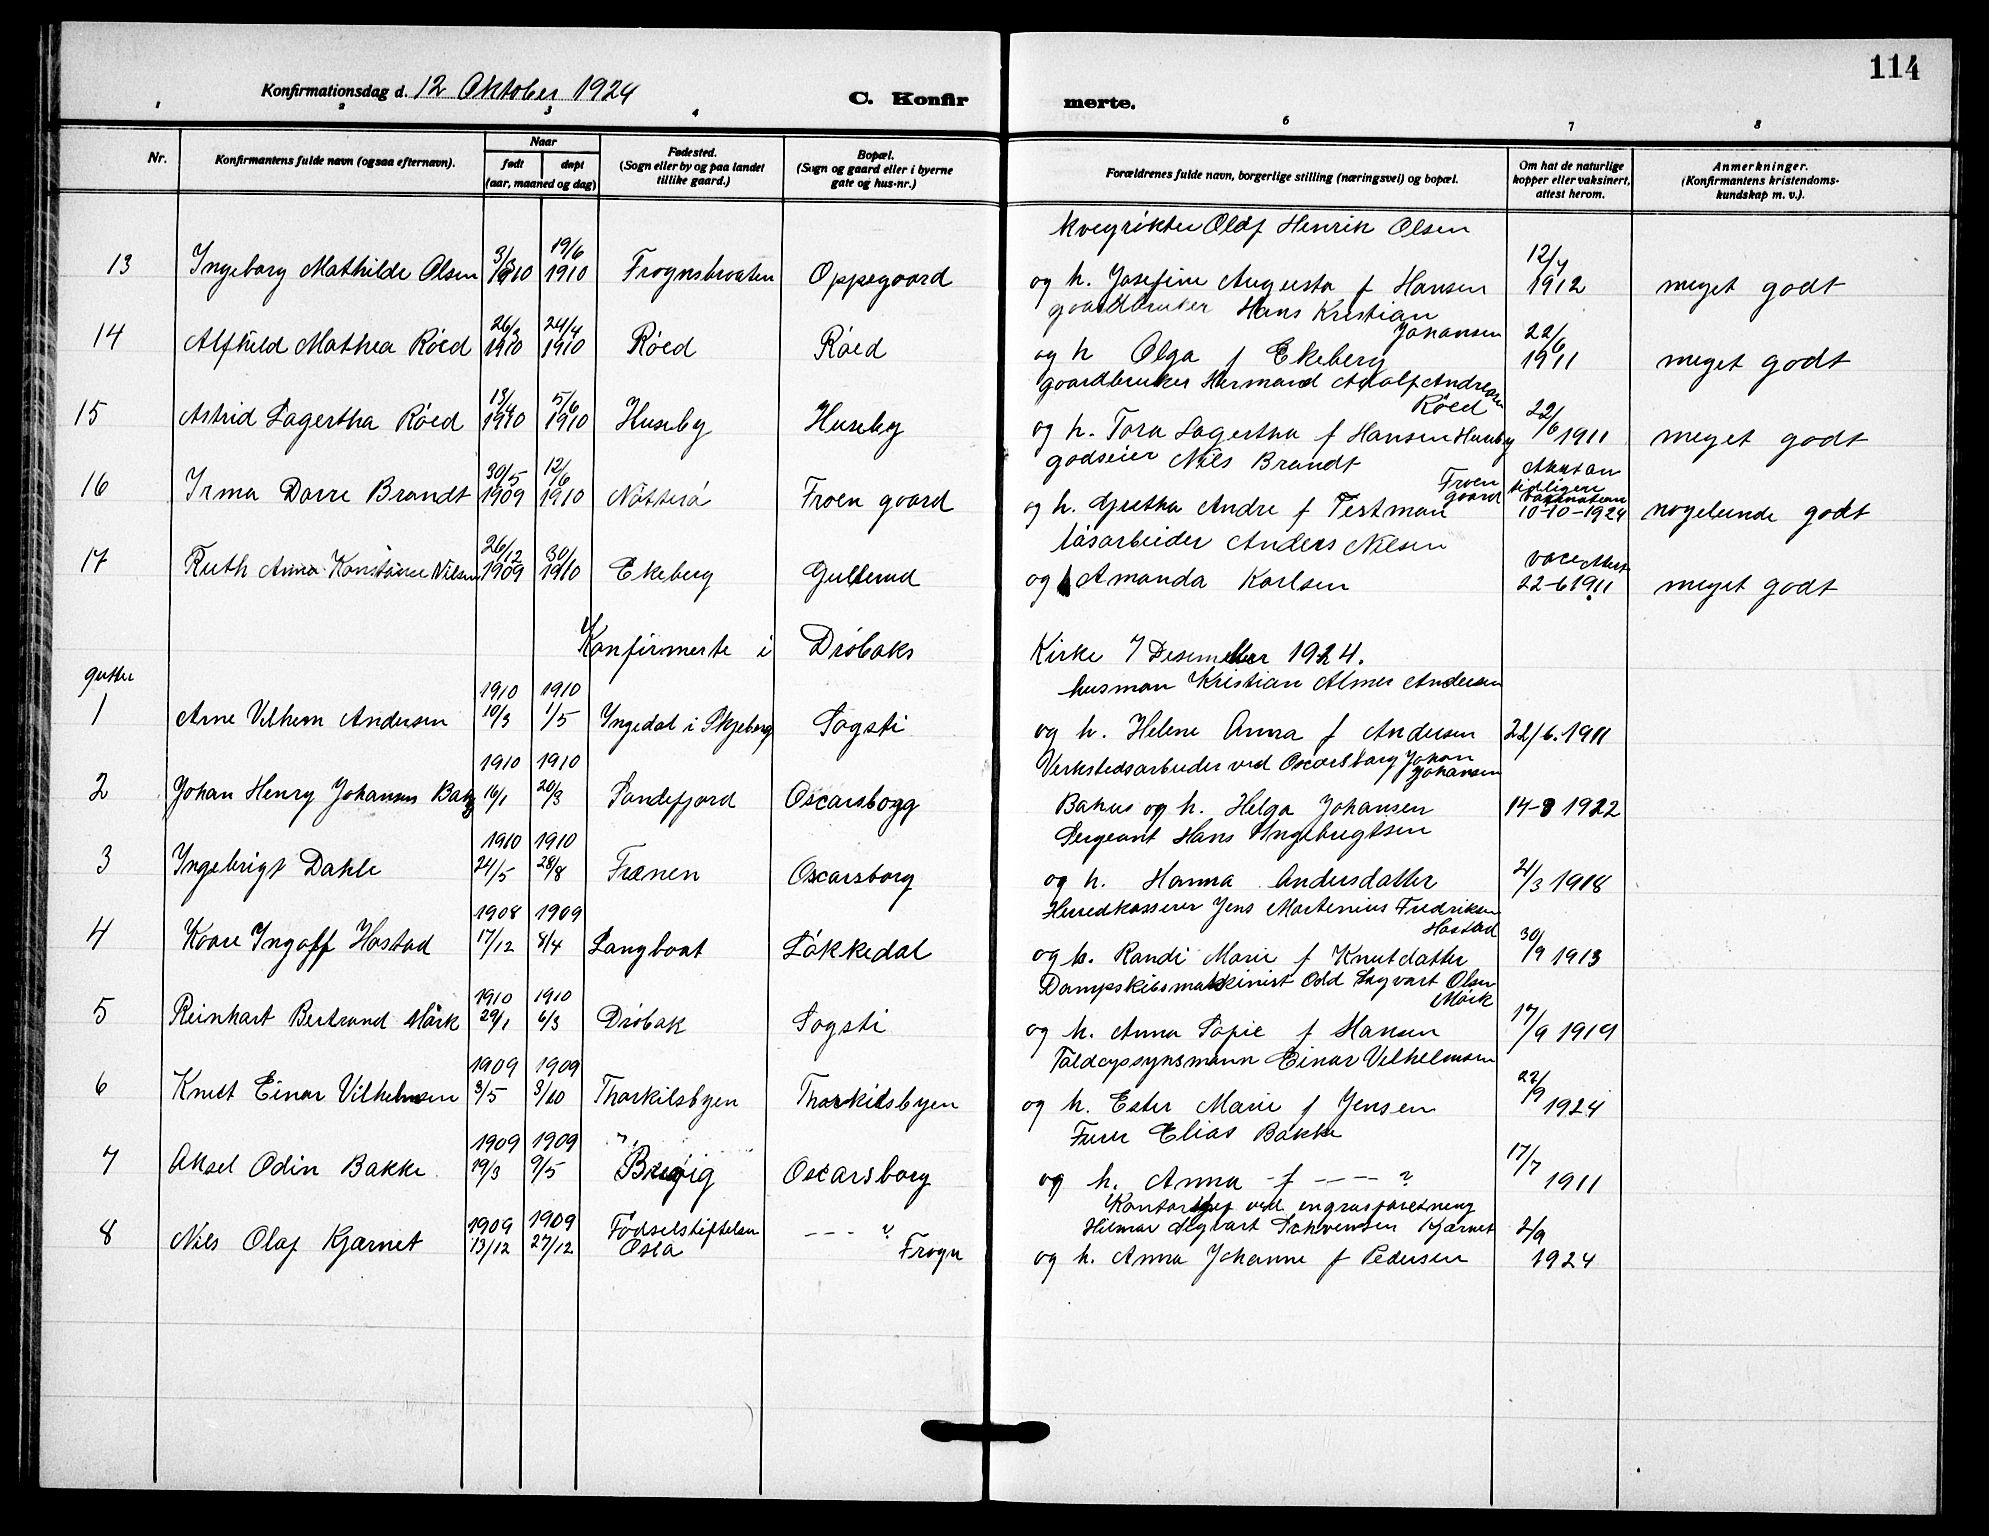 114
Konfirmationsdag d. 12 Oktober 1924
C. Konfirmerte.
1 2 3 4 6 7 8
Nr.
Konfirmantens fulde navn (ogsaa efternavn).
Naar
født døpt
(aar, maaned og dag)
Fødested.
(Sogn eller by og paa landet
tillike gaard.)
Bopæl.
(Sogn og gaard eller i byerne
gate og hus-nr.)
Forældrenes fulde navn, borgerlige stilling (næringsvei) og bopæl.
Om hat de naturlige
kopper eller vaksinert,
attest herom.
Anmerkninger.
(Konfirmantens kristendoms-
kundskap m. v.).
kvegrökter Olaf Henrik Olsen
13 Ingeborg Mathilde Olsen 3/3 1910 19/6 1910 Frognsbraaten Oppegaard og h. Josefine Augusta f Hansen 12/4 1912 meget godt
gaardbruker Hans Kristian
Johansen
14 Alfhild Mathea Röed 26/2 1910 24/4 1910 Röed Röed og h Olga f Ekeberg 22/6 1911 meget godt
gaardbruker Hermand Adolf Andresen
Röed
15 Astrid Lagertha Röed 13/4 1910 5/6 1910 Huseby Huseby og h. Tora Lagertha f Hansen Huseby 22/6 1911 meget godt
godseier Nils Brandt
Froen
gaard
16 Irma Dorre Brandt 30/5 1909 12/6 1910 Nötterö Froen gaard og h. Gretha Andre f Testman tidligere vaksination 10-10-1924 nogelunde godt
løsarbeider Anders Nilsen
17 Ruth Anna Konstanse Nilsen 26/12 1909 30/1 1910 Ekeberg Gulterud og Amanda Karlsen vacc Attest 22-6 1911 meget godt
Konfirmerte i Dröbaks Kirke 7 Desember 1924.
gutter
husman Kristian Almer Andersen
1 Arne Vilhem Andersen 1910 10/3 1910 1/5 Ingedal i Skjeberg Sogsti og h. Helene Anna f Andersen 22/6. 1911
Verkstedsarbeider ved Oscarsborg Johan
Johansen
2 Johan Henry Johansen 1910 16/1 1910 20/3 Sandefjord Oscarsbogg Bakus og h. Helga Johansen 14-8 1922
Sergeant Hans Ingebrigtsen
3 Ingebrigt Dahle 1910 24/5 1910 28/8 Frænen Oscarsborg og h. Hanna Andersdatter 21/3 1918
Herredkasserer Jens Martenius Fredriksen
Hostad
4 Kaare Ingolf Hostad 1908 17/12 1909 8/4 Langbaat Lökkedal og h. Randi Marie f Knutdatter 30/9 1913
Dampskibsmaskinist Odd Sigvart Olsen
Mörk
5 Reinhart Bertrand Mörk 1910 29/1 1910 6/3 Dröbak Sogsti og h. Anna Sofie f Hansen 17/9 1919
Toldopsynsmann Einar Vilhelmsen
6 Knut Einar Vilhelmsen 1909 3/5 1909 3/10 Thorkilsbyen Thorkilsbyen og h. Ester Marie f Jensen 22/9 1924
Furer Elias Bakke
7 Aksel Odin Bakke 1909 19/3 1909 9/5 Oscarsborg og h. Anna - f - - - - ? 17/7 1911
Kontorchef ved engrosforetning
Hilmar Sigvart Schvensen Kjærnet
8 Nils Olaf Kjærnet 1909 13/12 1909 27/12 Födselstiftelsen Oslo - - - " Frogn og h. Anna Johanne f Pedersen 2/9 1924